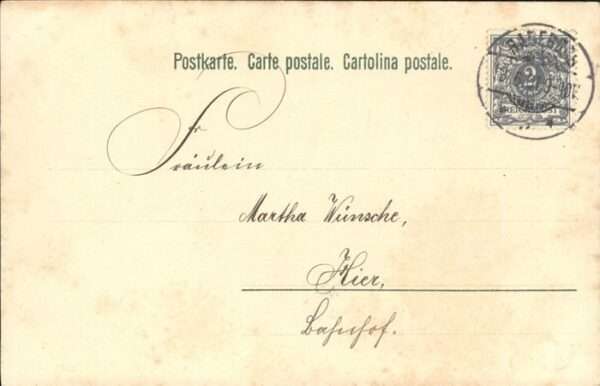 Postkarte. Carte postale. Cartolina postale.
2
Fräulein
Martha Wünsche,
Hier,
Bahnhof.